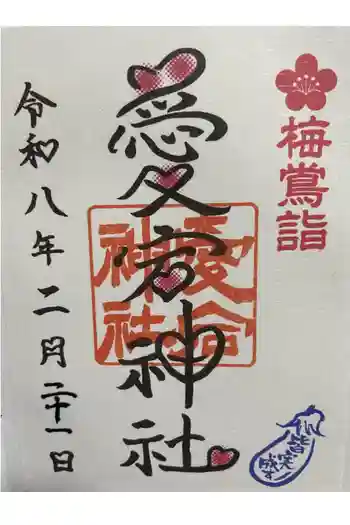 梅鶯詣
愛宕神社
愛宕神社
令和八年二月二十一日